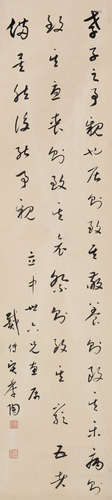 孝子之事親也居則致其敬養則致其樂病則
致其憂喪則致其哀祭則致其嚴五者
備矣然後能事親
立中
戴傳賢季陶